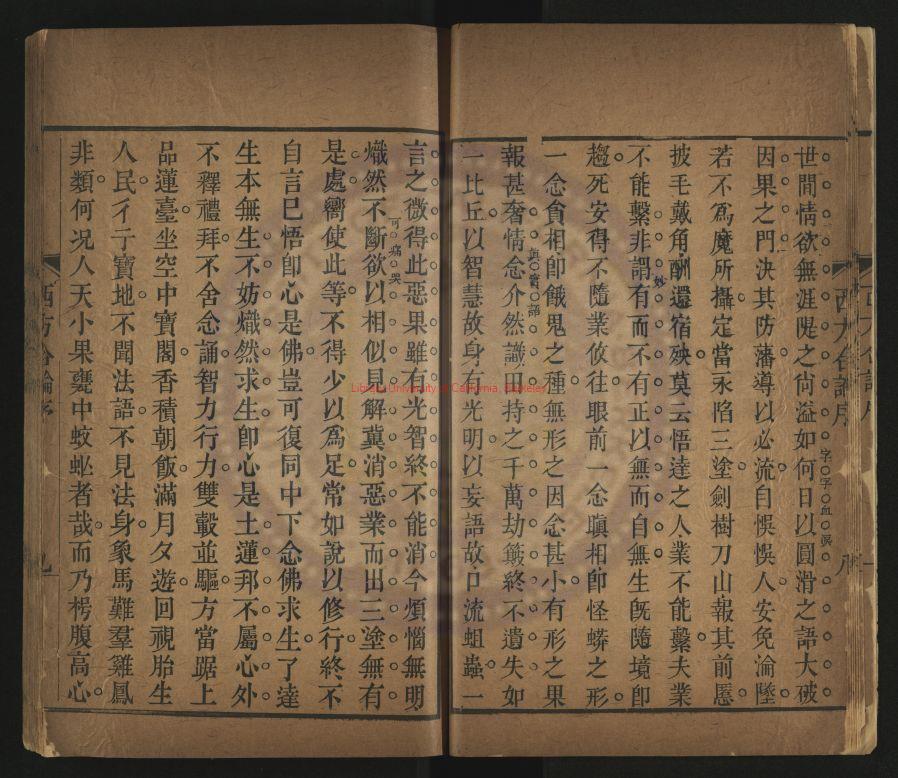 世間情欲無涯隄之尙溢如何日以圓滑之語大破
字字血淚
因果之門決其防藩導以必流自悞悞人安免淪墜
若不爲魔所攝定當永陷三塗劍樹刀山報其前愿
披毛戴角酬還宿殃莫云悟達之人業不能繫夫業
妙
不能繫非謂有而不有正以無而自無生旣隨境卽
趨死安得不隨業攸往眼前一念瞋相卽怪蟒之形
一念貪相卽餓鬼之種無形之因念甚小有形之果
眞實語
報甚奢情念介然識田持之千萬劫纔終不遺失如
一比丘以智慧故身有光明以妄語故口流蛆蟲一
西方合論序
八
言之微得此惡果雖有光智終不能消今煩惱無明
可痛哭
熾然不斷欲以相似見解冀消惡業而出三塗無有
是處嚮使此等不得少以爲足常如說以修行終不
自言已悟卽心是佛豈可復同中下念佛求生了達
生本無生不妨熾然求生卽心是土蓮邦不屬心外
不釋禮拜不舍念誦智力行力雙轂並驅方當踞上
品蓮臺坐空中寶閣香積朝飯滿月夕遊回視胎生
人民彳亍寶地不聞法語不見法身象馬難羣雞鳳
非類何況人天小果甕中蚊蚋者哉而乃楞腹高心
西方合論序
九
Library University of California, Berkeley